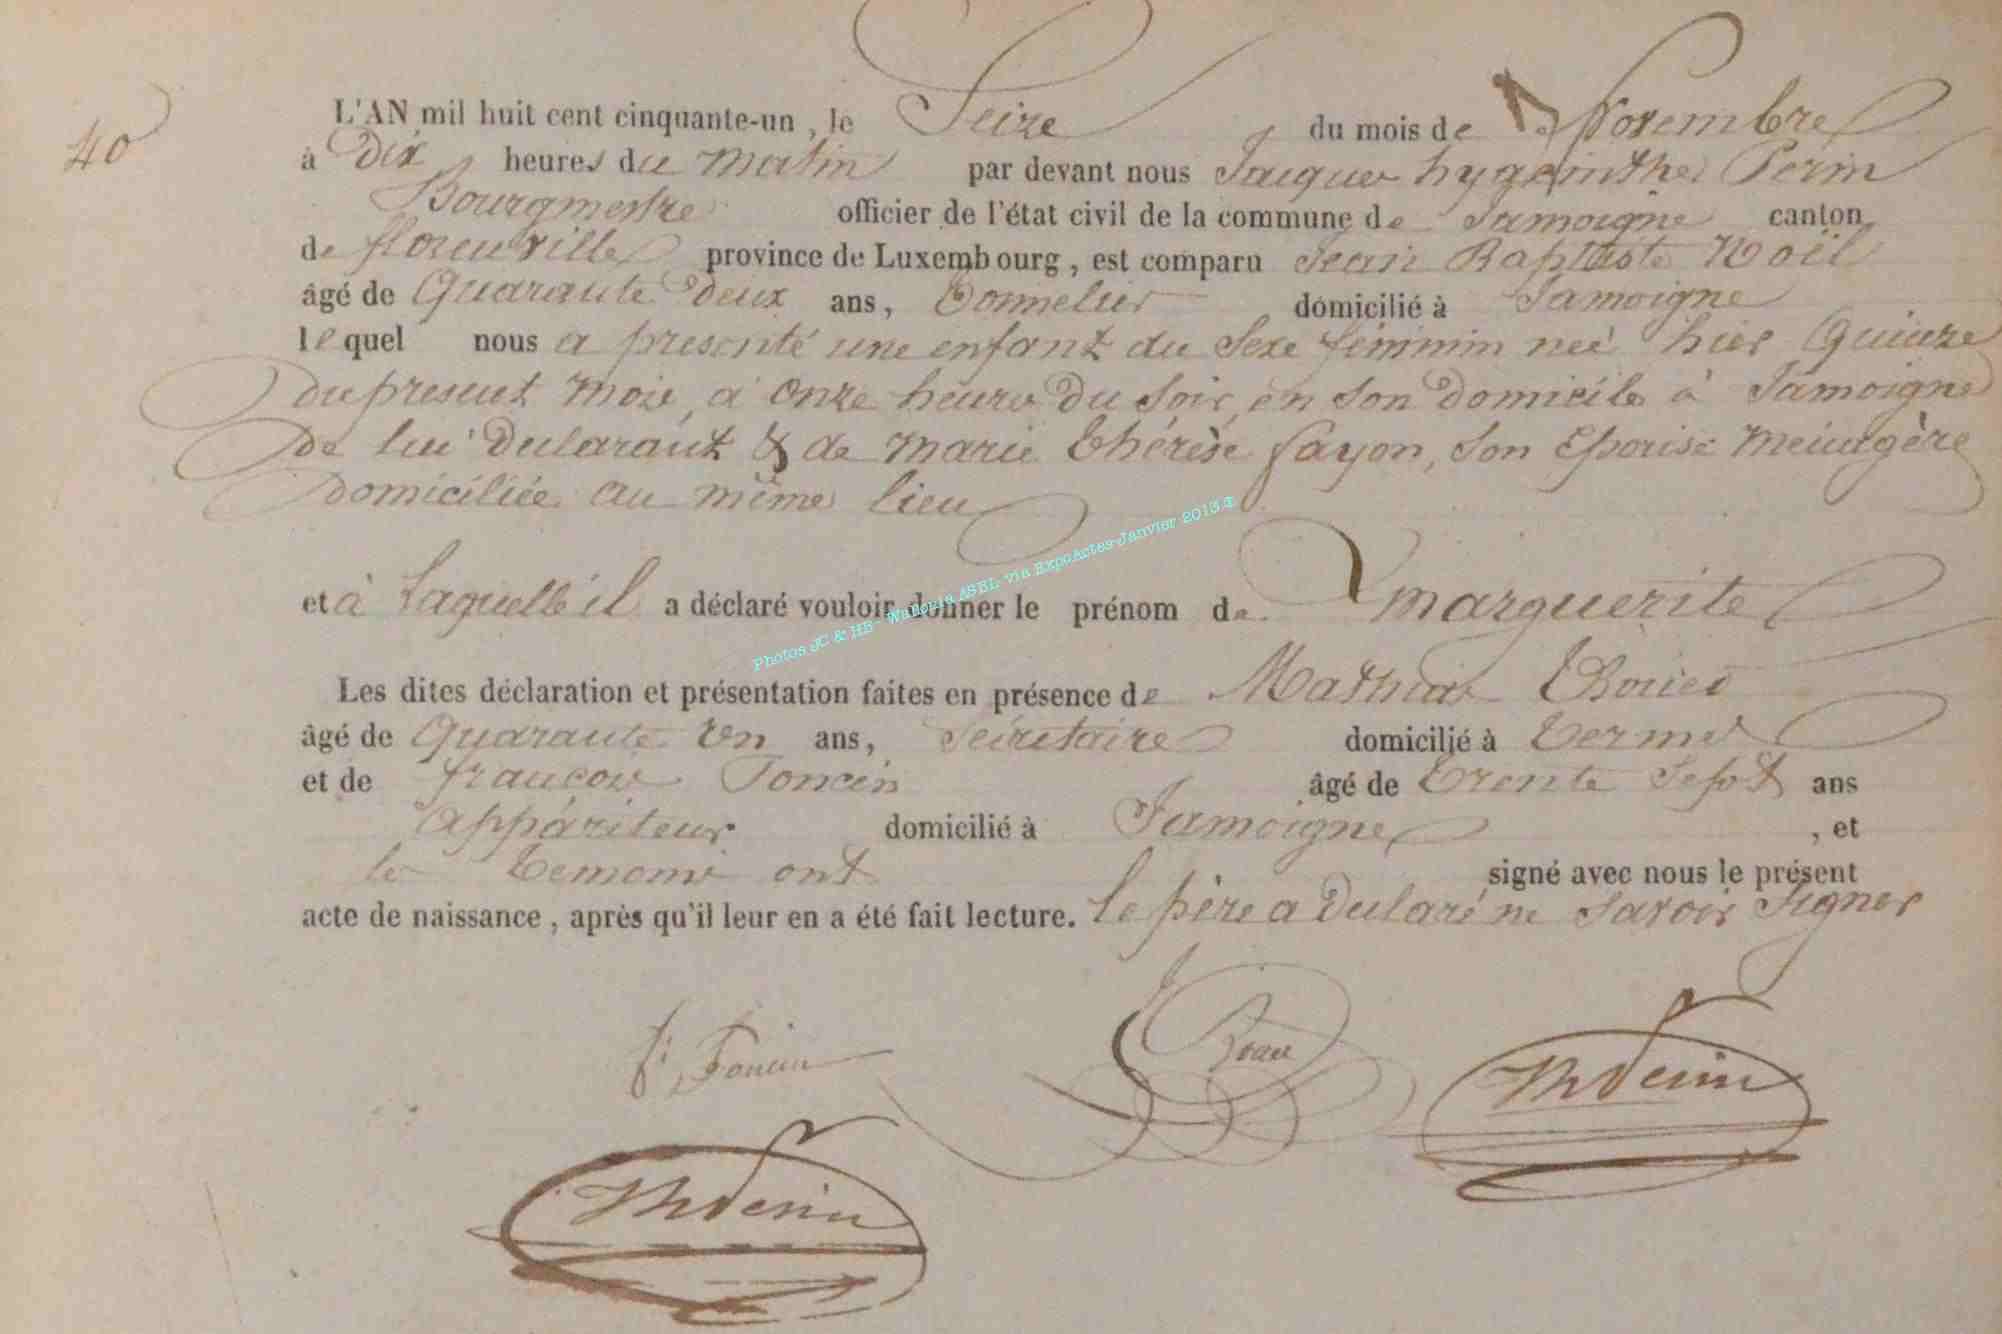 40
L'AN mil huit cent cinquante-un, le Seize du mois de Novembre
à Dix heures du matin par devant nous Jacques hygacinthe Perin
Bourgmestre officier de l'état civil de la commune de Jamoigne canton
de florenville province de Luxembourg, est comparu Jean Baptiste Noël
âgé de Quarante Deux ans, Tonnelier domicilié à Jamoigne
lequel nous a presenté une enfant du Sexe féminin neé hier Quinze
du present mois, à Onze heure du Soir, en Son Domicile à Jamoigne
De lui Declarant & de Marie Thérèse fayon, Son Epouse Menagère
Domiciliée au même lieu
et à Laquelle il a déclaré vouloir donner le prénom de marguerite
Les dites déclaration et présentation faites en présence de Mathias
âgé de Quarante Un ans, Secretaire domicilié à Termes
et de françois Foncin âgé de Trente Sept ans
appariteur domicilié à Jamoigne , et
les Temoins ont signé avec nous le présent
acte de naissance, après qu'il leur en a été fait lecture. Le père a Declaré ne Savoir Signer
f. Foncin
Perin
Perin
Photos JC & HB - Wallonia ASBL via ExpoActes-Janvier 2013